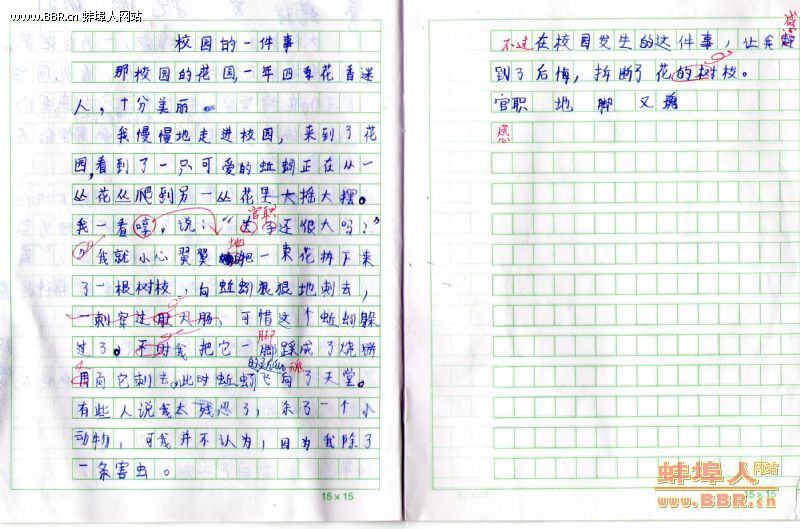 www.BBR.cn 蚌埠人网站
校园的一件事
那校园的花园,一年四季花香迷
人,十分美丽。
我慢慢地走进校园,来到了花
园,看到了一只可爱的蚯蚓正在从一
丛花丛爬到另一丛花里大摇大摆。
官职
我一看嘿,说:“ 还很大吗?”
地
我就小心翼翼 把一束花拆下来
了一根树枝,向蚯蚓狠狠地刺去,
一刺穿过肚大肠,可惜这个蚯蚓躲
脚
过了。不时我把它一脚踩成了烧饼
的 魂
用向它刺去。此时蚯蚓飞向了天堂。
有些人说我太残忍了,杀了一个小
动物,可我并不认为,因为我除了
一条害虫。
15×15
感
不过在校园发生的这件事,让我
到了后悔,拆断了花的树枝。
官职 地 脚 又
感
15×15
蚌埠人网站
www.BBR.cn